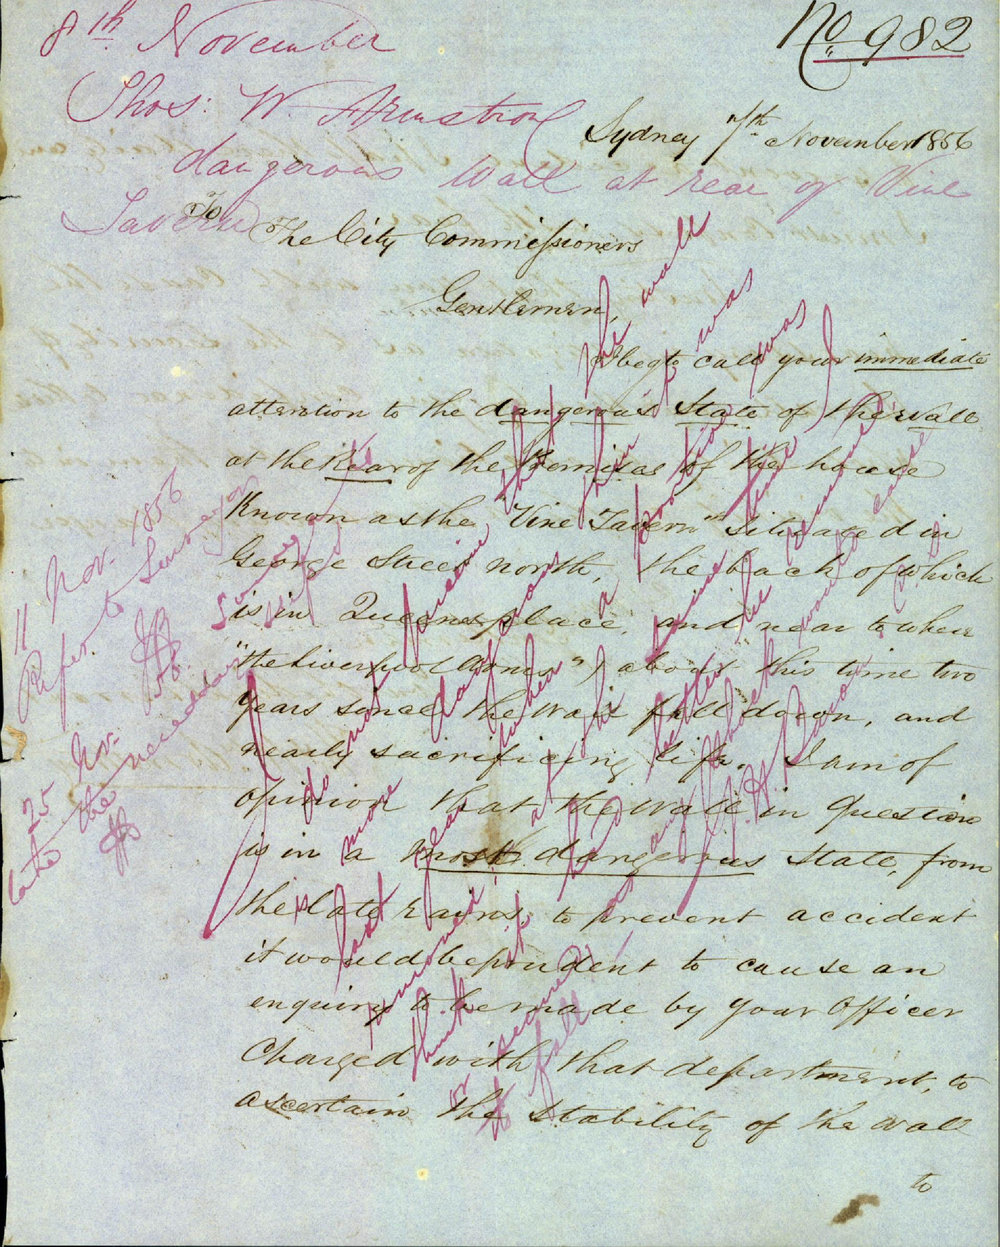 No. 982
8th November
Thos: W. Armstrong
dangerous Wall at rear of Vine
Tavern
Sydney 7th November 1856
To
The City Commissioners
Gentlemen,
I beg to call your immediate
attention to the dangerous State of the wall
at the Rear of the Premises of the house
Known as the "Vine Tavern" Situated in
George Street north, the back of which
is in Queens place, and near to where
"the Liverpool Arms") about this time two
years since the Wall fell down, and
nearly sacrificing life. I am of
opinion that the Wall in Question
is in a most dangerous state, from
the late rains, to prevent accident
it would be prudent to cause an
enquiry to be made by your Officer
Charged with that department, to
ascertain the Stability of the wall
to
11 Nov. 1856
Refer to Surveyor
25 Nov.
take the necessary
I do not fancy that the wall
is more dangerous than it was
last year when a portion was
removed, at the same time I
think it had better be removed
or secured, as any shock would cause
it to fall